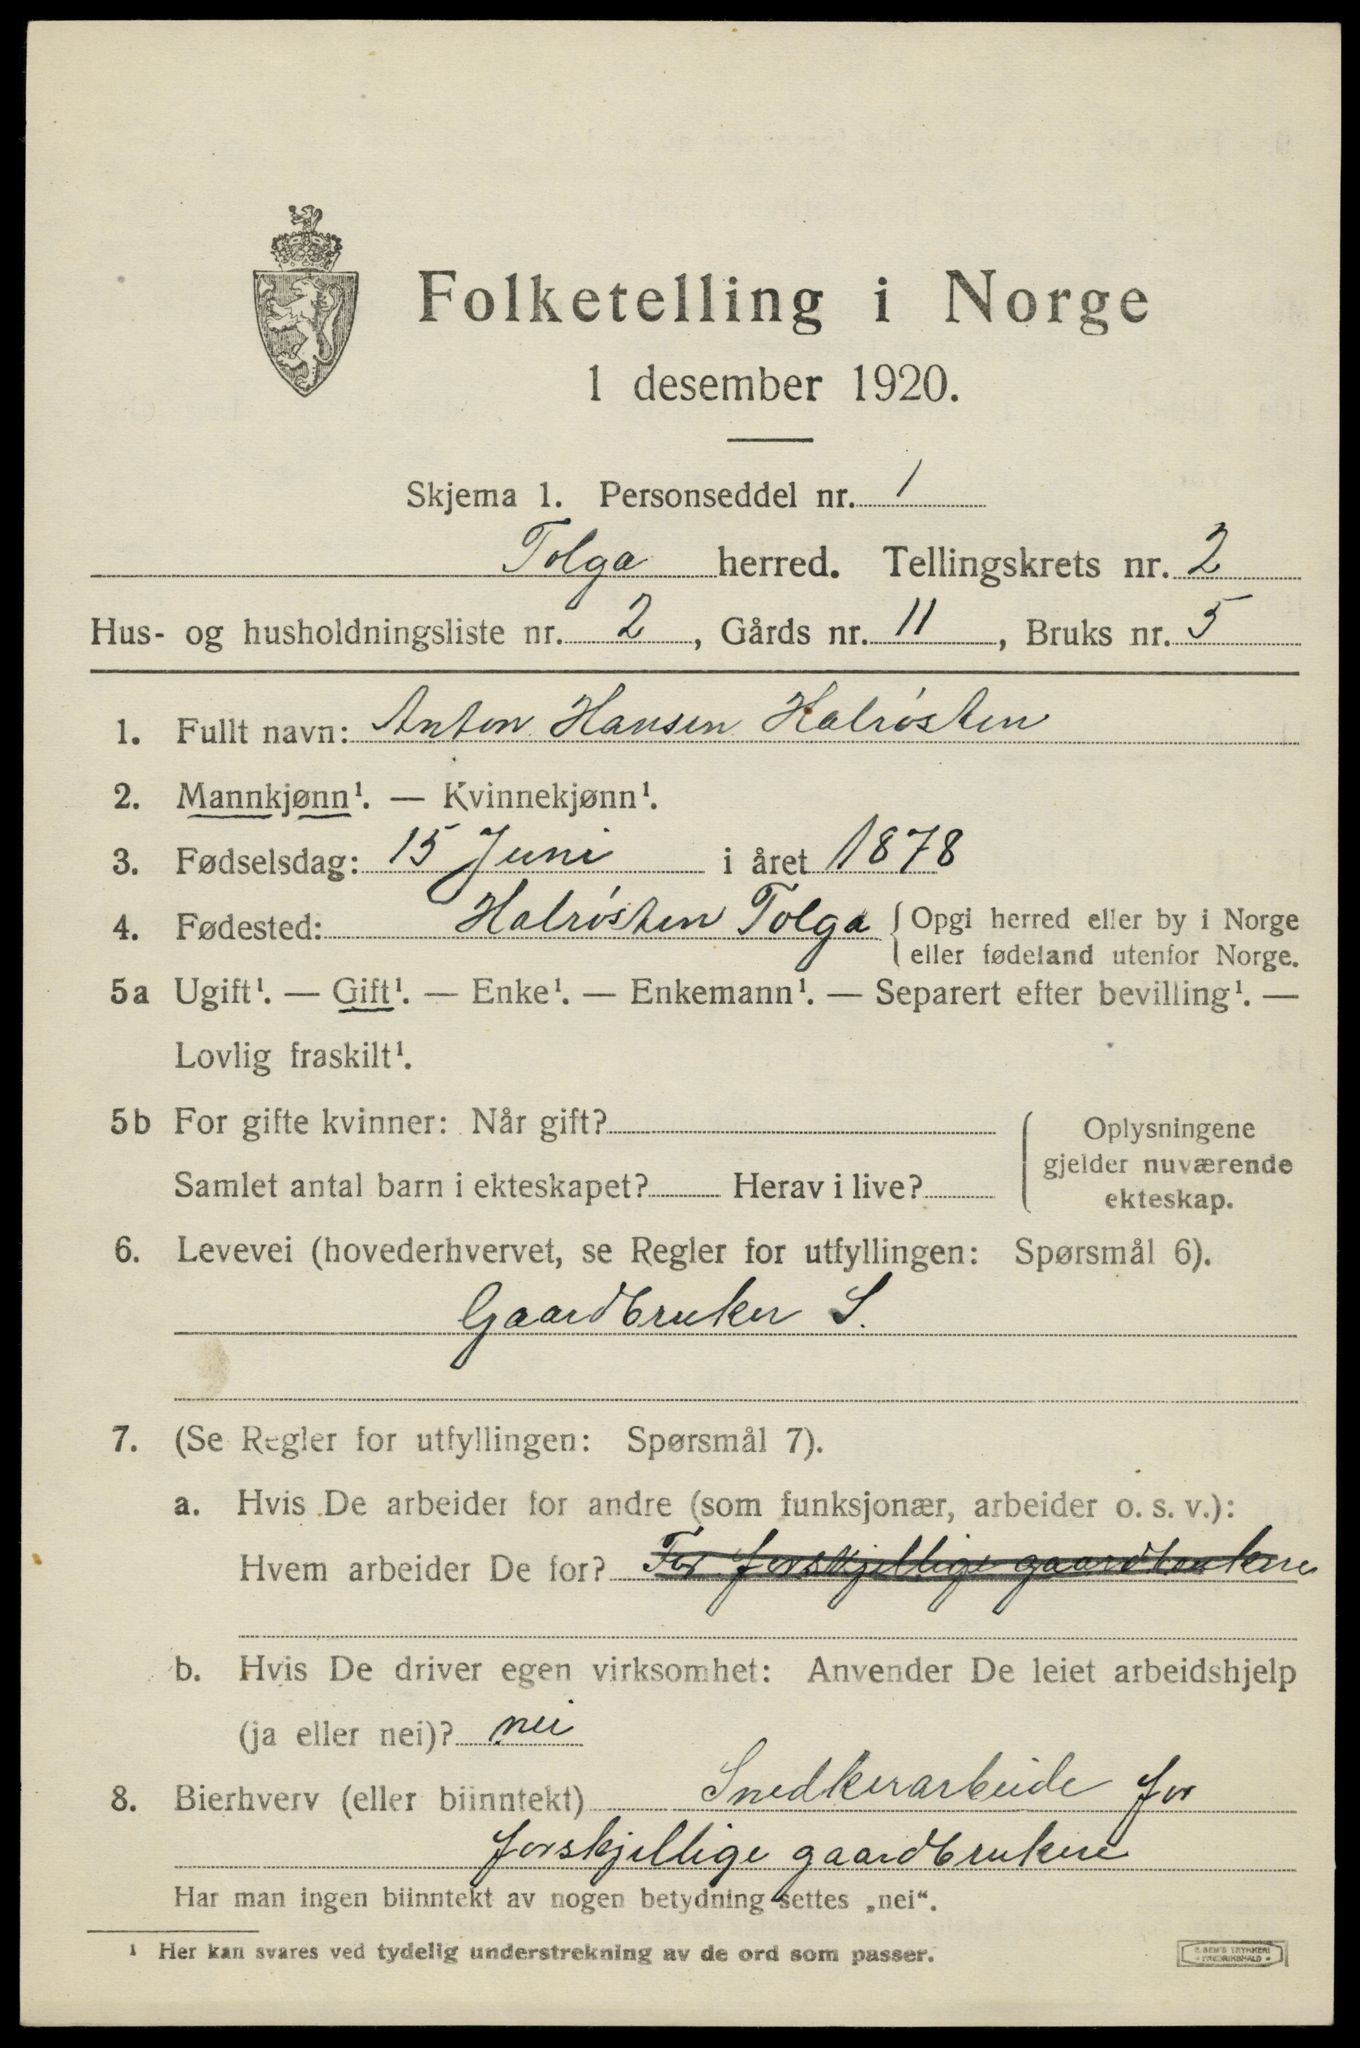 Folketelling i Norge
1 desember 1920.
Skjema 1. Personseddel nr. 1
Tolga herred. Tellingskrets nr. 2
Hus- og husholdningsliste nr. 2, Gårds nr. 11, Bruks nr. 5
1. Fullt navn: Anton Hansen Halrøsten
2. Mannkjønn¹. — Kvinnekjønn¹.
3. Fødselsdag: 15 Juni i året 1878
4. Fødested: Halrøsten Tolga { Opgi herred eller by i Norge
eller fødeland utenfor Norge.
5a Ugift¹. — Gift¹. — Enke¹. — Enkemann¹. — Separert efter bevilling¹. —
Lovlig fraskilt¹.
5b For gifte kvinner: Når gift?
Samlet antal barn i ekteskapet? Herav i live?
Oplysningene
gjelder nuværende
ekteskap.
6. Levevei (hovederhvervet, se Regler for utfyllingen: Spørsmål 6).
Gaardbruker S.
7. (Se Regler for utfyllingen: Spørsmål 7).
a. Hvis De arbeider for andre (som funksjonær, arbeider o. s. v.):
Hvem arbeider De for? For forskjellige gaardbrukere
b. Hvis De driver egen virksomhet: Anvender De leiet arbeidshjelp
(ja eller nei)? nei
8. Bierhverv (eller biinntekt) Snedkerarbeide for
forskjellige gaardbrukere
Har man ingen biinntekt av nogen betydning settes „nei“.
¹ Her kan svares ved tydelig understrekning av de ord som passer.
E. SEM'S TRYKKERI
FREDRIKSHALD